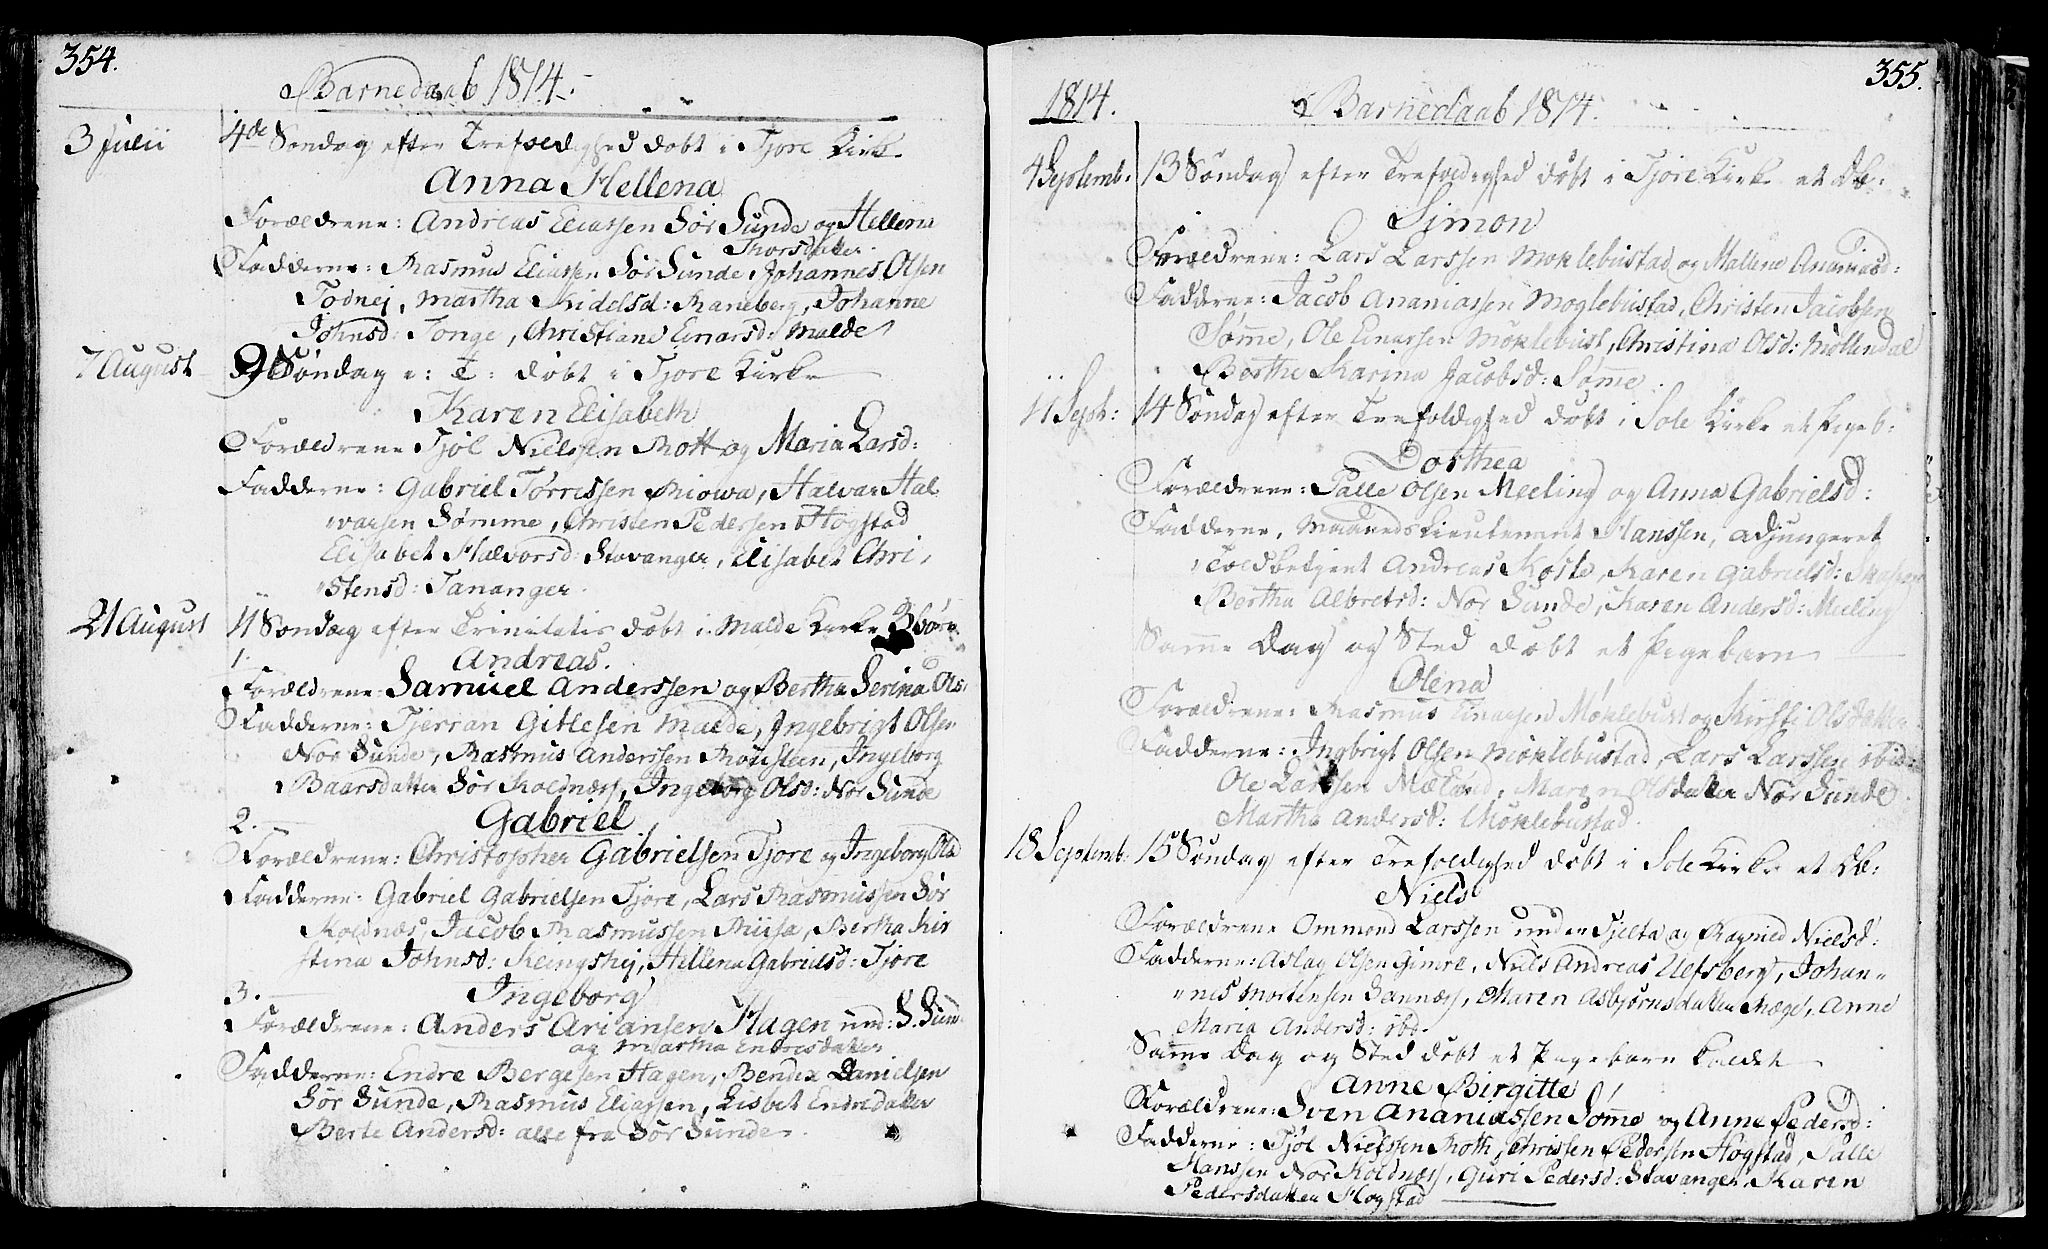 354.
Barnedaab 1814.
3 Julii 4de Søndag efter Trefoldighed døbt i Tjore Kirke
Anna Hellena
Forældrene: Andreas Eliassen Sør Sunde og Hellena
Thorsdatter.
Fadderne: Rasmus Eliassen Sør Sunde, Johannes Olsen
Todnej, Martha Kidelsd: Raneberg, Johanne
Johnsd: Tonge, Christiane Einarsd: Malde
7 August 9 Søndag e: T: døbt i Tjore Kirke
Karen Elisabeth
Forældrene Tjøl Nielssen Rott og Maria Larsd:
Fadderne: Gabriel Tørressen Risowa, Halvar Hal-
varsen Sømme, Christen Pedersen Hogstad
Elisabet Halvorsd: Stavanger, Elisabet Chri-
stensd: Tananger.
21 August 11 Søndag efter Trinitatis døbt i Malde Kirke 3 børn
1. Andreas.
Forældrene: Samuel Anderssen og Bertha Serina Ols:
Fadderne: Tjerran Gitlesen Malde, Ingebrigt Olsen
Nor Sunde, Rasmus Anderssen Rousteen, Ingeborg
Baarsdatter Sør Kolnæss, Ingeborg Olsd: Nor Sunde
2. Gabriel
Forældrene: Christopher Gabrielsen Tjore og Ingeborg Olsd
Fadderne: Gabriel Gabrielsen Tjore, Lars Rasmussen Sør
Kolnæs, Jacob Rasmussen Riisa, Bertha Kir
stina Johnsd: Reingshej, Hellena Gabrielsd: Tjore
3. Ingeborg
Forældrene: Anders Ariansen Hagen und: S. Sun
og Martha Endresdatter
Fadderne: Endre Bergesen Hagen, Bendix Danielsen
Sør Sunde, Rasmus Eliassen, Lisbet Endredatter
Berte Andersd: alle fra Sør Sunde.
355.
1814. Barnedaab 1814.
4 Septemb: 13 Søndag efter Trefoldighed døbt i Tjore Kirke et Db:
Simon
Forældrene: Lars Larssen Moklebustad og Mallene Ananiasd:
Fadderne: Jacob Ananiassen Moglebustad, Christen Jacobsen
Sømme, Ole Einarsen Møklebust, Christina Olsd: Møllendal
Berthe Karina Jacobsd: Sømme.
11 Sept: 14 Søndag efter Trefoldighed døbt i Sole Kirke et Pigeb:
Dorthea
Forældrene: Salle Olsen Meeling og Anna Gabrielsd:
Fadderne, Maaneds Lieutenant Hanssen, adjungeret
Toldbetjent Andreas Koste, Karen Gabrielsd:
Bertha Albretsd: Nor Sunde, Karen Andersd: Meeling
Samme Dag og Sted døbt et Pigebarn
Olena
Forældrene: Rasmus Einarsen Møklebust og Kirsti Olsdatter
Fadderne: Ingbrigt Olsen Møklebustad, Lars Larssen ibid:
Ole Larssen Mæland, Maren Olsdatter Nor Sunde.
Martha Andersd: Møklebustad.
18 Septemb: 15 Søndag efter Trefoldighed døbt i Sole Kirke et Db:
Niels
Forældrene Ommond Larssen under Tjelta og Ragnild Nielsd:
Fadderne: Aslag Olsen Gimre, Niels Andreas Ulfsberg, Johan-
nes Mortensen Sannæs, Maren Asbjørnsdatter Ræge, Anne
Maria Andersd: ibd.
Samme Dag og Sted døbt et Pigebarn kaldet
Anne Birgitte
Forældrene: Sven Ananiassen Sømme og Anne Pedersd:
Fadderne: Tjøl Nielssen Roth, Christen Pedersen Hogstad, Salle
Hanssen Nor Kolnæss, Guri Pedersd: Stavanger, Karen
Pedersdatter Hogstad